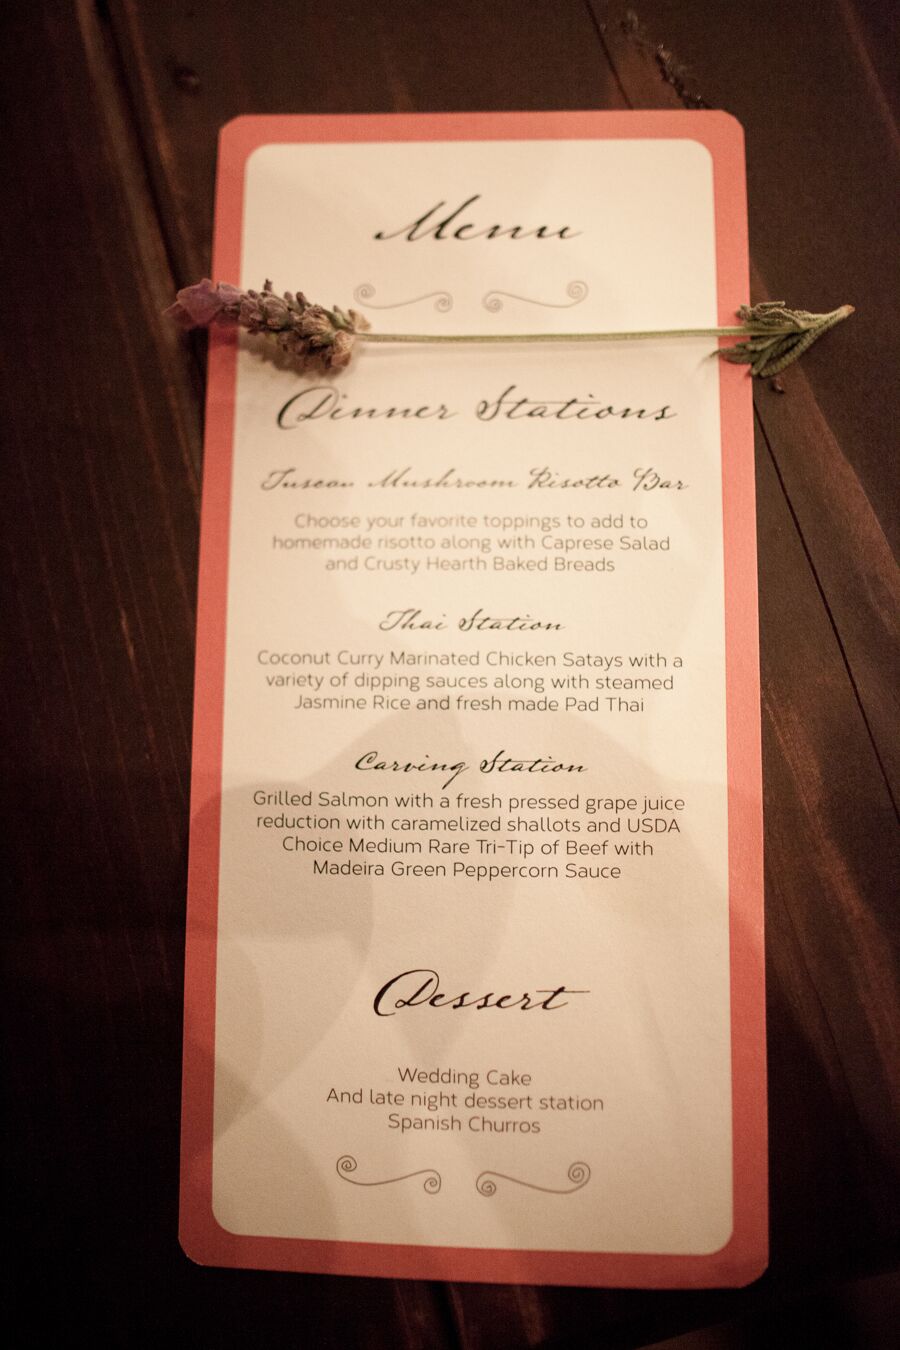 Menu
Dinner Stations
Tuscan Mushroom Risotto Bar
Choose your favorite toppings to add to
homemade risotto along with Caprese Salad
and Crusty Hearth Baked Breads
Thai Station
Coconut Curry Marinated Chicken Satays with a
variety of dipping sauces along with steamed
Jasmine Rice and fresh made Pad Thai
Carving Station
Grilled Salmon with a fresh pressed grape juice
reduction with caramelized shallots and USDA
Choice Medium Rare Tri-Tip of Beef with
Madeira Green Peppercorn Sauce
Dessert
Wedding Cake
And late night dessert station
Spanish Churros